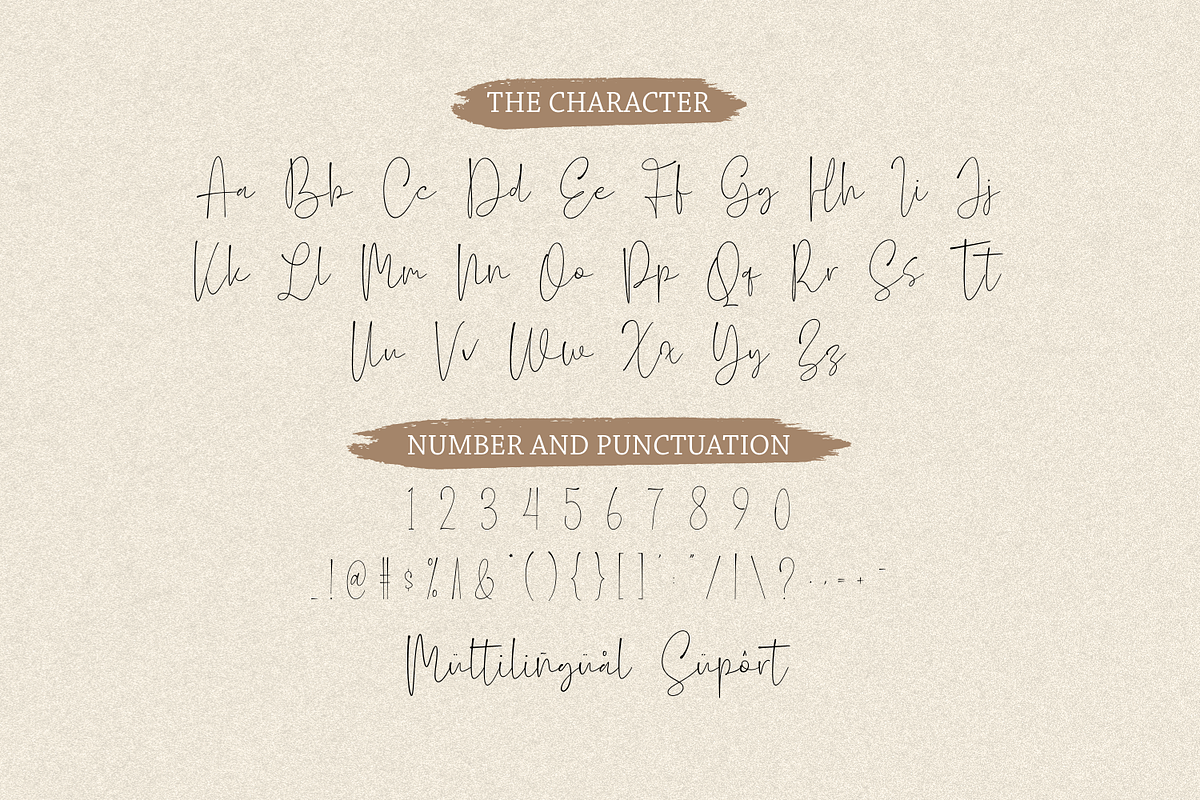 THE CHARACTER
Aa Bb Cc Dd Ee Ff Gg Hh Ii Jj
Kk Ll Mm Nn Oo Pp Qq Rr Ss Tt
Uu Vv Ww Xx Yy Zz
NUMBER AND PUNCTUATION
1 2 3 4 5 6 7 8 9 0
_ ! @ # $ % ^ & * ( ) { } [ ] ' : " / | \ ? . , = + -
Mültilingüål Süpôrt